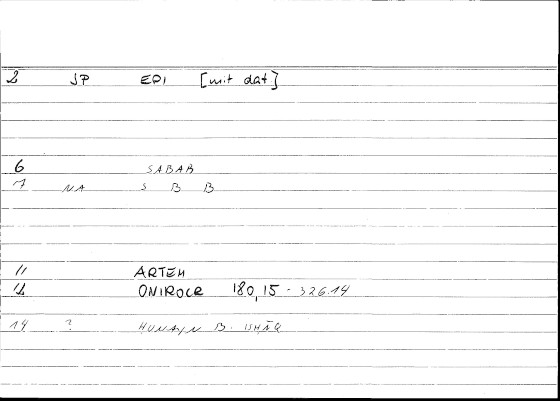 2 JP EDI [mit dat]
6 SABAB
7 NA S B B
11 ARTEM
12 ONIROCR 180,15 - 326.14
14 ? HUNAYN B. ISHĀQ